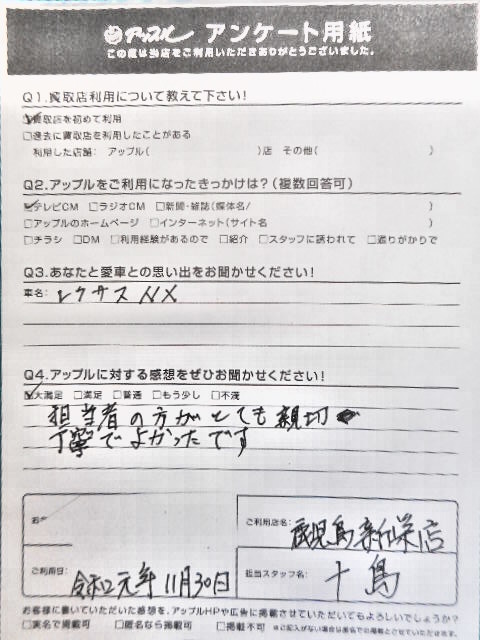 アップル アンケート用紙
この度は当店をご利用いただきありがとうございました。
Q1.買取店利用について教えて下さい!
☑買取店を初めて利用
□過去に買取店を利用したことがある
利用した店舗: アップル( )店 その他( )
Q2.アップルをご利用になったきっかけは?(複数回答可)
☑テレビCM □ラジオCM □新聞・雑誌(媒体名/ )
□アップルのホームページ □インターネット(サイト名 )
□チラシ □DM □利用経験があるので □紹介 □スタッフに誘われて □通りがかりで
Q3.あなたと愛車との思い出をお聞かせください!
車名: レクサスNX
Q4.アップルに対する感想をぜひお聞かせください!
☑大満足 □満足 □普通 □もう少し □不満
担当者の方がとても親切
丁寧でよかったです
お
ご利用店名: 鹿児島新栄店
ご利用日: 令和元年11月30日
担当スタッフ名: 十島
お客様に書いていただいた感想を、アップルHPや広告に掲載させていただいてもよろしいでしょうか?
□実名で掲載可 □匿名なら掲載可 □掲載不可 ※ご記入がない場合は匿名での掲載とさせていただきます。